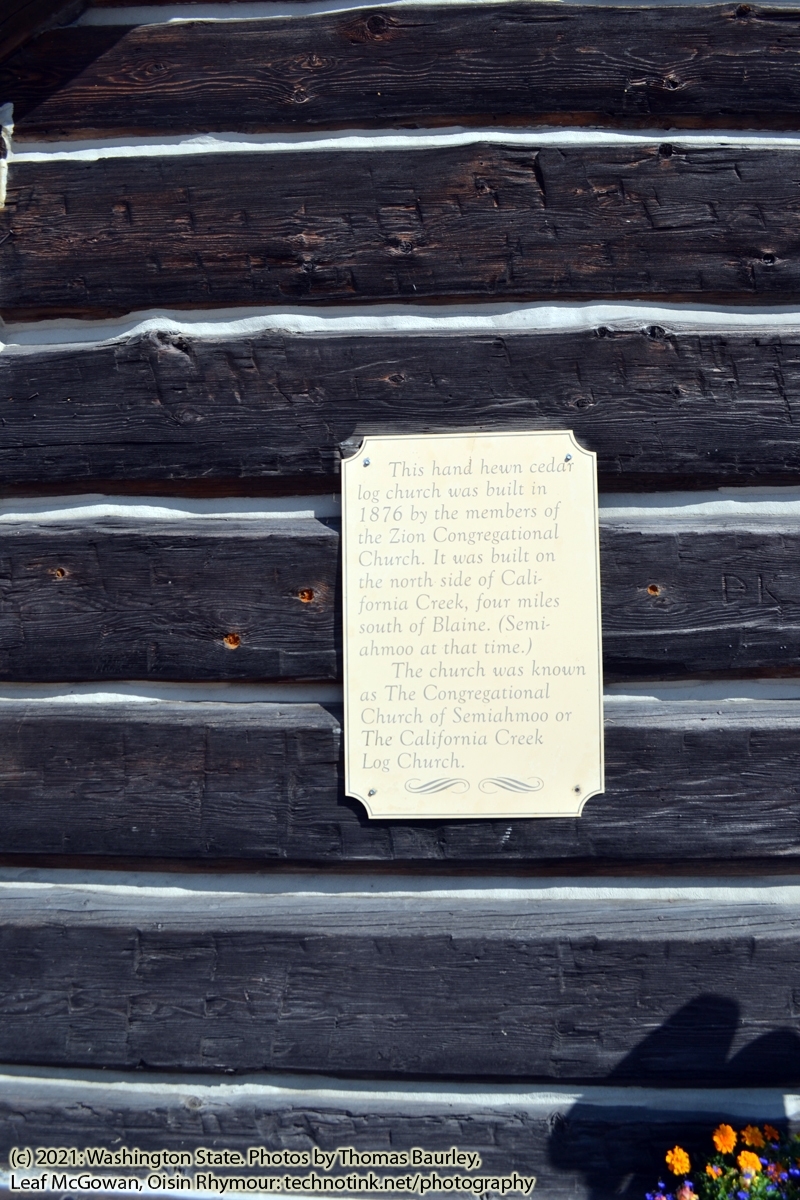 This hand hewn cedar
log church was built in
1876 by the members of
the Zion Congregational
Church. It was built on
the north side of Cali-
fornia Creek, four miles
south of Blaine. (Semi-
ahmoo at that time.)
The church was known
as The Congregational
Church of Semiahmoo or
The California Creek
Log Church.
DK
(c) 2021: Washington State. Photos by Thomas Baurley,
Leaf McGowan, Oisin Rhymour: technotink.net/photography